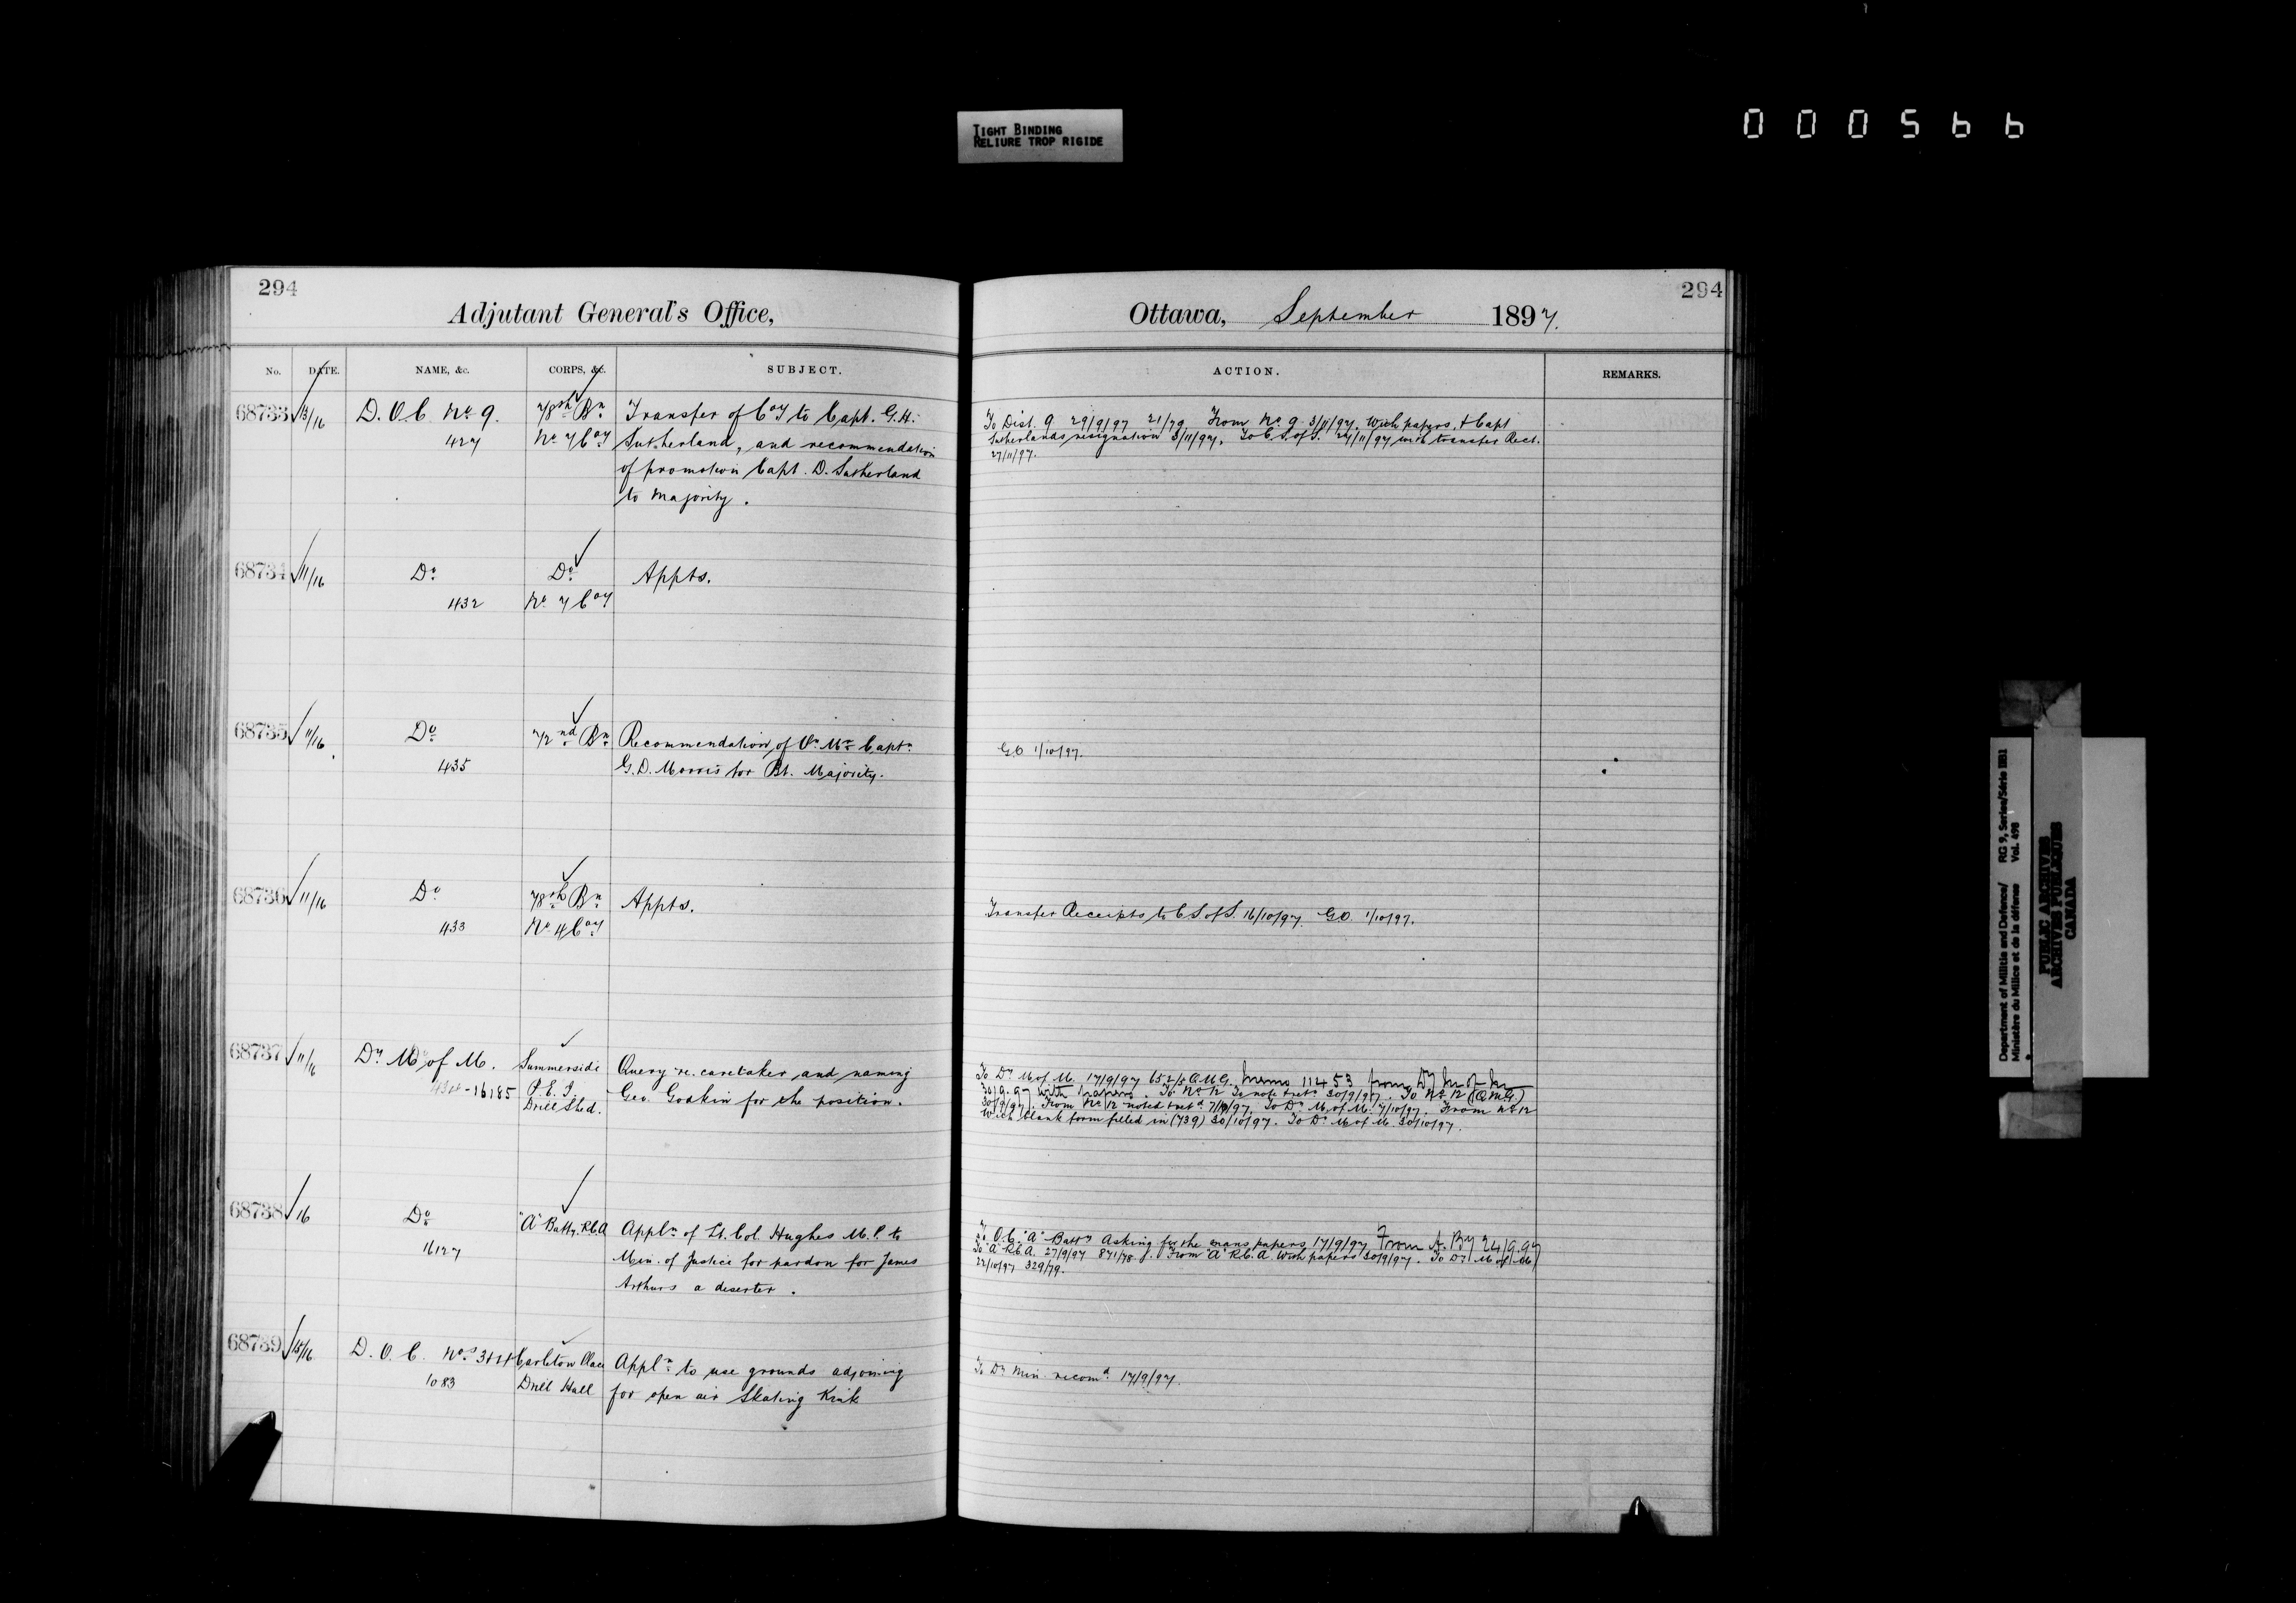 TIGHT BINDING
RELIURE TROP RIGIDE
000566
294
Adjutant General's Office,
No. DATE. NAME, &c. CORPS, &c. SUBJECT.
68733 13/16 D. O. C. No. 9. 78th Bn Transfer of Coy to Capt. G. H.
427 No 7 Coy Sutherland, and recommendation
of promotion Capt. D. Sutherland
to Majority.
68734 11/16 Do Do Appts.
432 No 7 Coy
68735 11/16 Do 72nd Bn Recommendation of Qr. Mr. Captn
435 G. D. Morris for Bt. Majority.
68736 11/16 Do 78th Bn Appts.
433 No 4 Coy
68737 11/16 Dy M of M. Summerside Query re. caretaker and naming
16185 P. E. I. Geo. Godkin for the position.
Drill Shed.
68738 16 Do "A" Batty. R.C.A Appln of Lt. Col. Hughes M.P. to
16127 Min. of Justice for pardon for James
Arthurs a deserter.
68739 15/16 D. O. C. Nos 3 & 4 Carleton Place Appln to use grounds adjoining
1083 Drill Hall for open air Skating Rink
294
Ottawa, September 1897.
ACTION. REMARKS.
To Dist. 9 29/9/97 21/79 From No. 9 3/11/97. With papers, & Capt
Sutherlands resignation 3/11/97. To C. S. of S. 24/11/97 with transfer Rect.
27/11/97.
G.O 1/10/97.
Transfer Receipts to C S. of S. 16/10/97. G.O. 1/10/97.
To Dy M of M. 17/9/97 652/5 Q.M.G. Memo 11453 from Dy M of M
30/9/97 with papers. To No 12 To note & retn 30/9/97. To No 12 (Q.M.G)
30/9/97. From No 12 noted & retd To Dy M. of M. 7/10/97. From No 12
With blank form filled in (739) 30/10/97. To Dy M of M. 30/10/97.
To O.C. "A" Batty Asking for the mans papers 17/9/97 From A. By 24/9.97
To "A" R.C.A. 27/9/97 871/78 From "A" R.C.A With papers 30/9/97. To Dy M of M
22/10/97 329/79.
To Dy Min recomd 17/9/97.
Department of Militia and Defence/ RG 9, Series/Série IIB1
Ministère du Milice et de la défense Vol. 498
PUBLIC ARCHIVES
ARCHIVES PUBLIQUES
CANADA